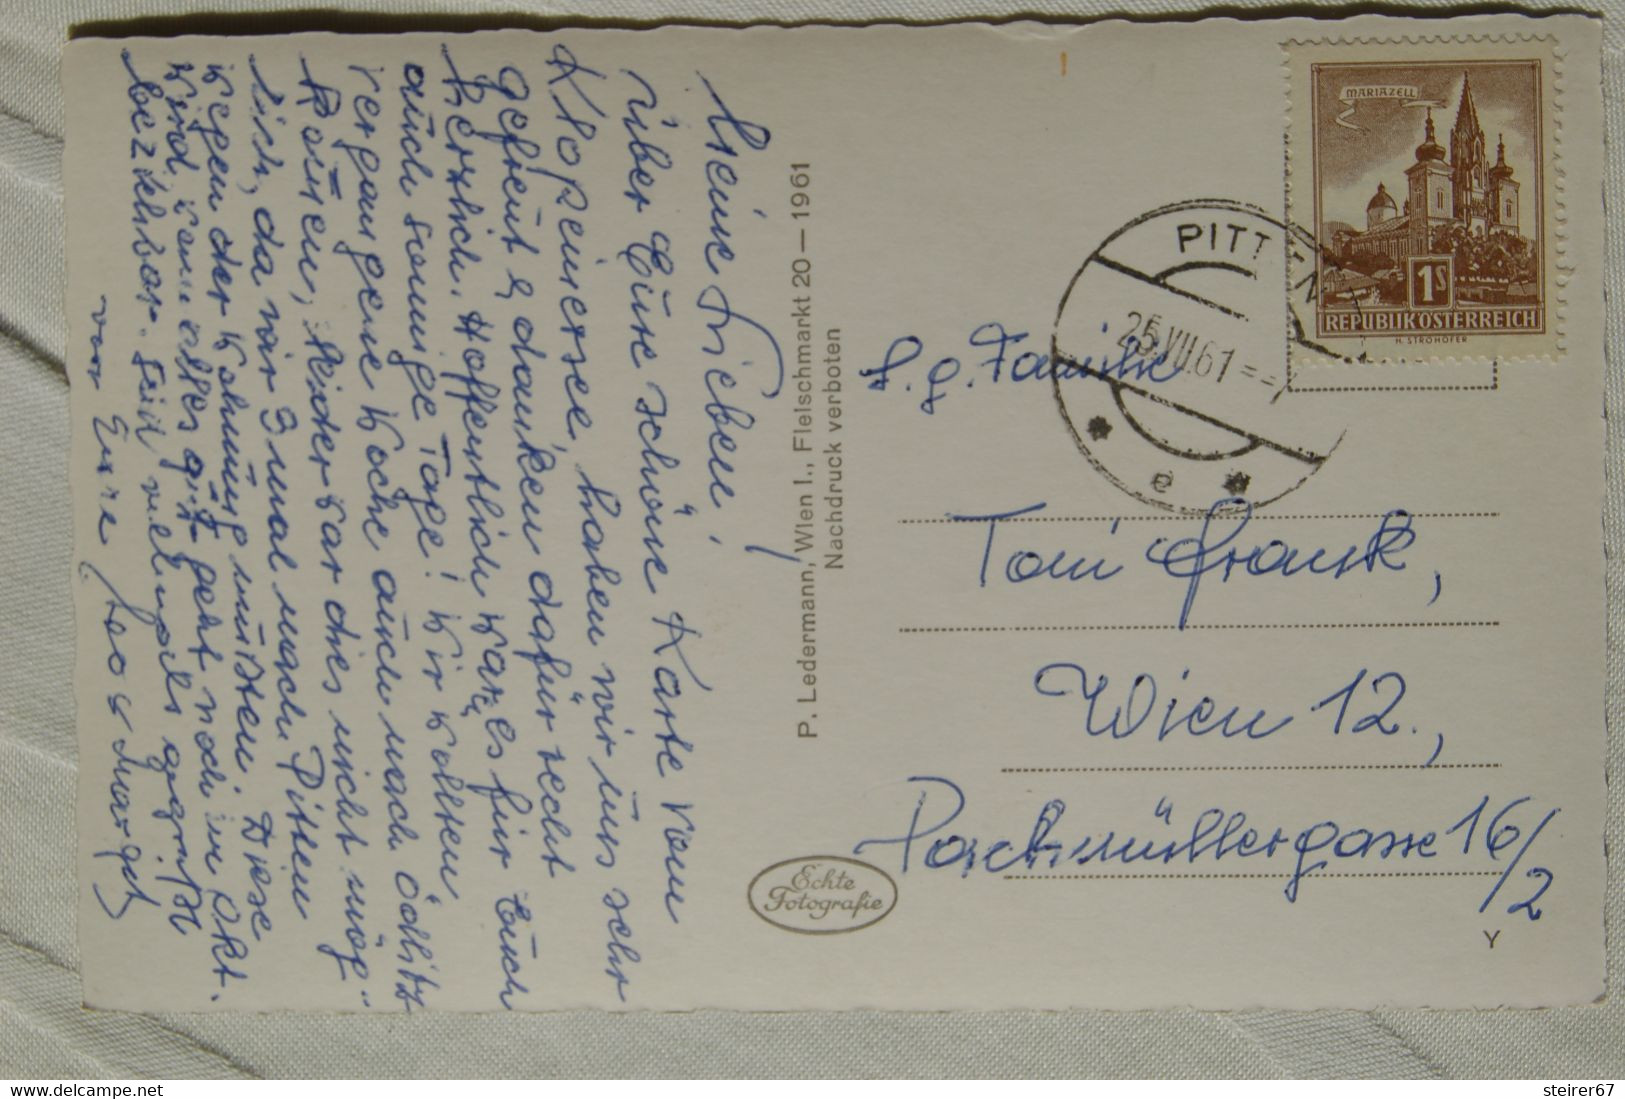 Meine Lieben!
Über Eure schöne Karte vom
Klopeinersee, haben wir uns sehr
gefreut & danken dafür recht
herzlich. Hoffentlich waren es für Euch
auch sonnige Tage! Wir wollten
vergangene Woche auch nach Ödlitz
kommen, leider war dies nicht mög-
lich, da wir 3 mal nach Pitten
wegen der Wohnung mußten. Diese
wird, wenn alles gut geht noch im Okt.
beziehbar. Seid vielmals gegrüßt
von Eure
P. Ledermann, Wien I., Fleischmarkt 20 — 1961
Nachdruck verboten
Echte
Fotografie
MARIAZELL
1S
REPUBLIK ÖSTERREICH
H. STROHOFER
PITTEN
25.VII.61
e
Familie
Toni Frank,
Wien 12.,
Pachmüllergasse 16/2
Y
delcampe.net
steirer67